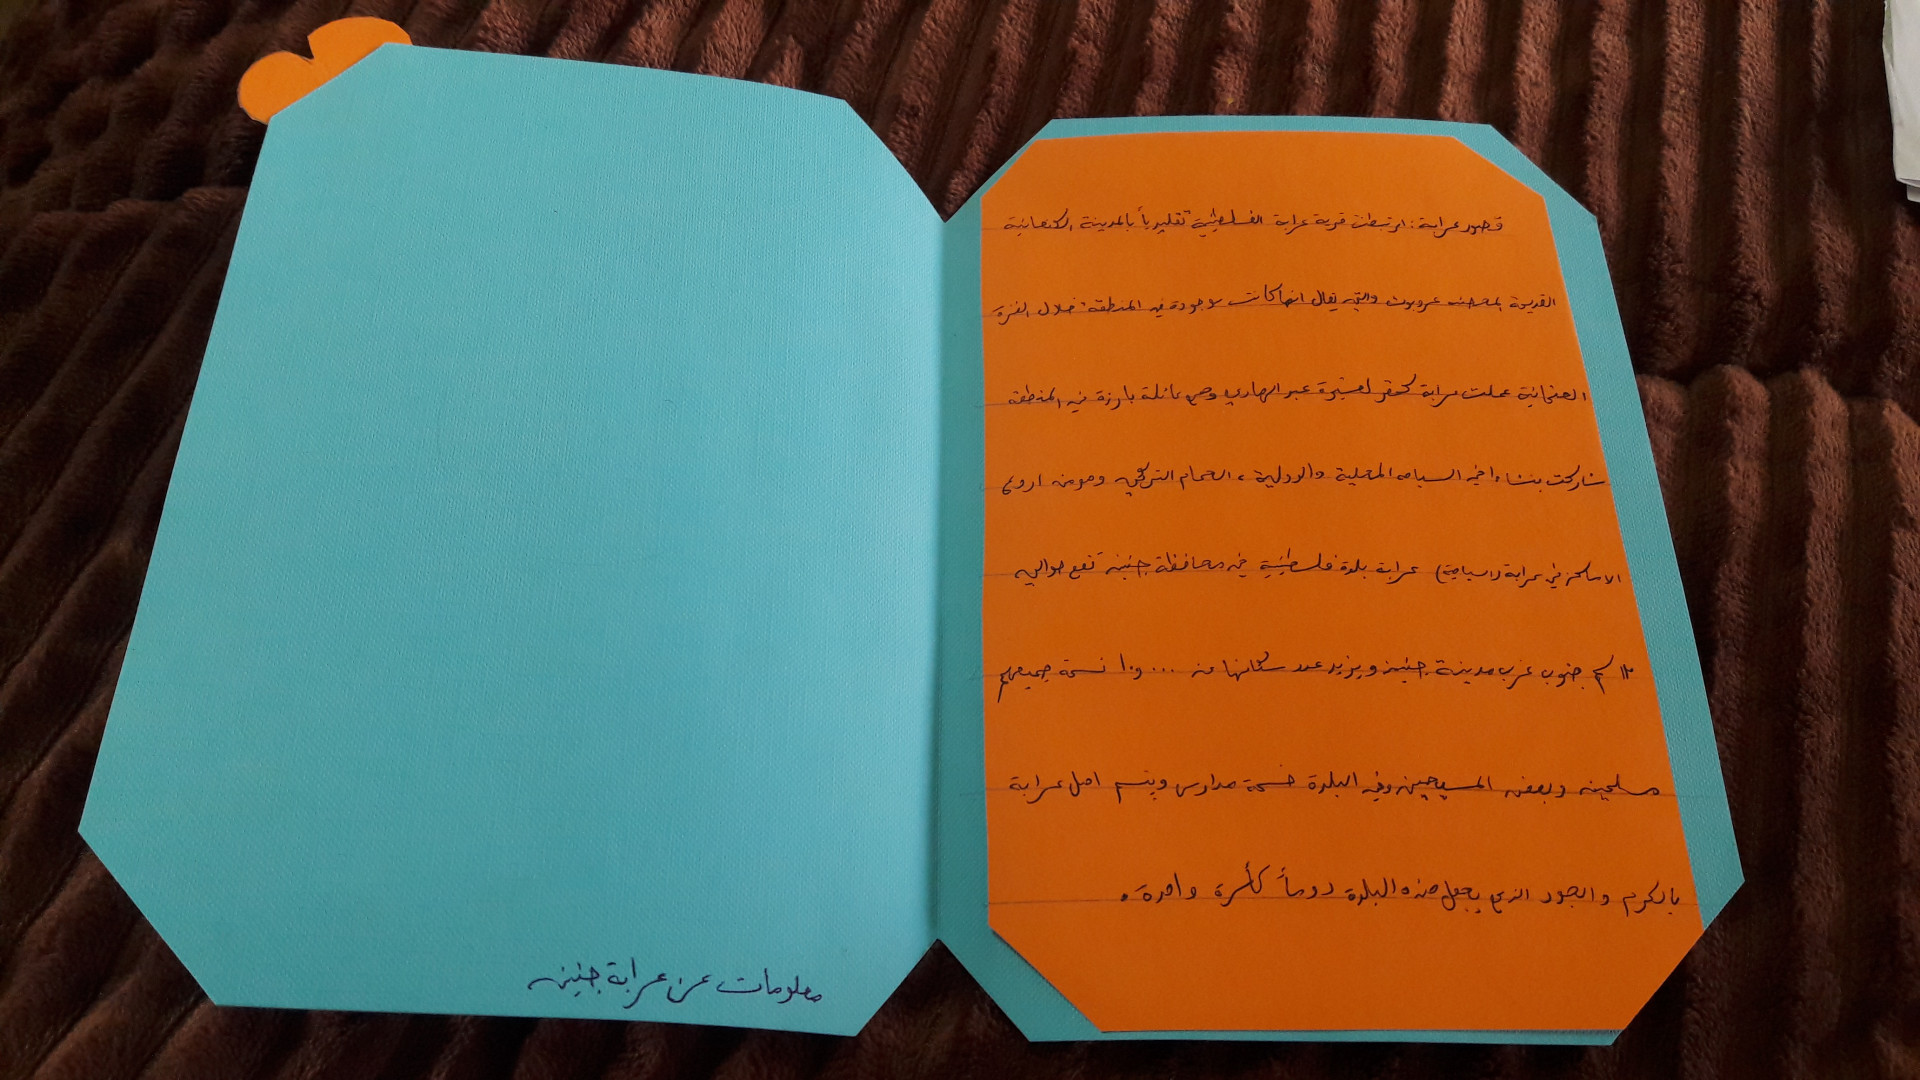 قصور عرابة: ارتبطت قرية عرابة الفلسطينية تقليدياً بالمدينة الكنعانية
القديمة عروبوت والتي يقال انها كانت موجودة في المنطقة خلال الفترة
العثمانية عملت عرابة كمقر لعشيرة عبد الهادي وهي عائلة بارزة في المنطقة
شاركت بنشاط في السياسة المحلية والدولية، الحمام التركي ومن اروع
الاماكن في عرابة (السياحية) عرابة بلدة فلسطينية في محافظة جنين تقع حوالي
كم جنوب غرب مدينة جنين ويزيد عدد سكانها عن نسمة جميعهم
مسلمين وبعض المسيحين وفي البلدة خمسة مدارس ويتسم اهل عرابة
بالكرم والجود الذي يجعل هذه البلدة دوماً كأسرة واحدة.
معلومات عن عرابة جنين